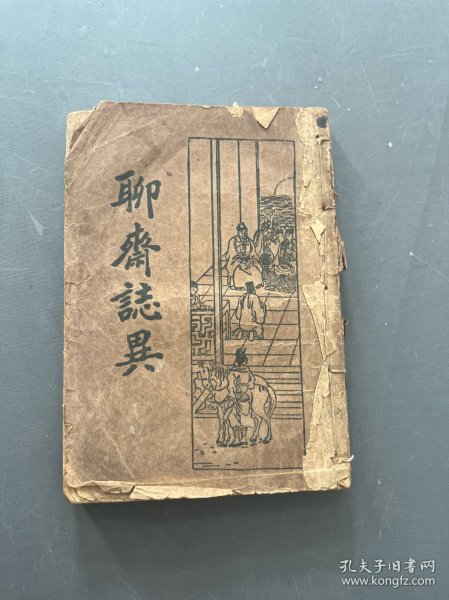 聊齋誌異
孔夫子旧书网
www.kongfz.com